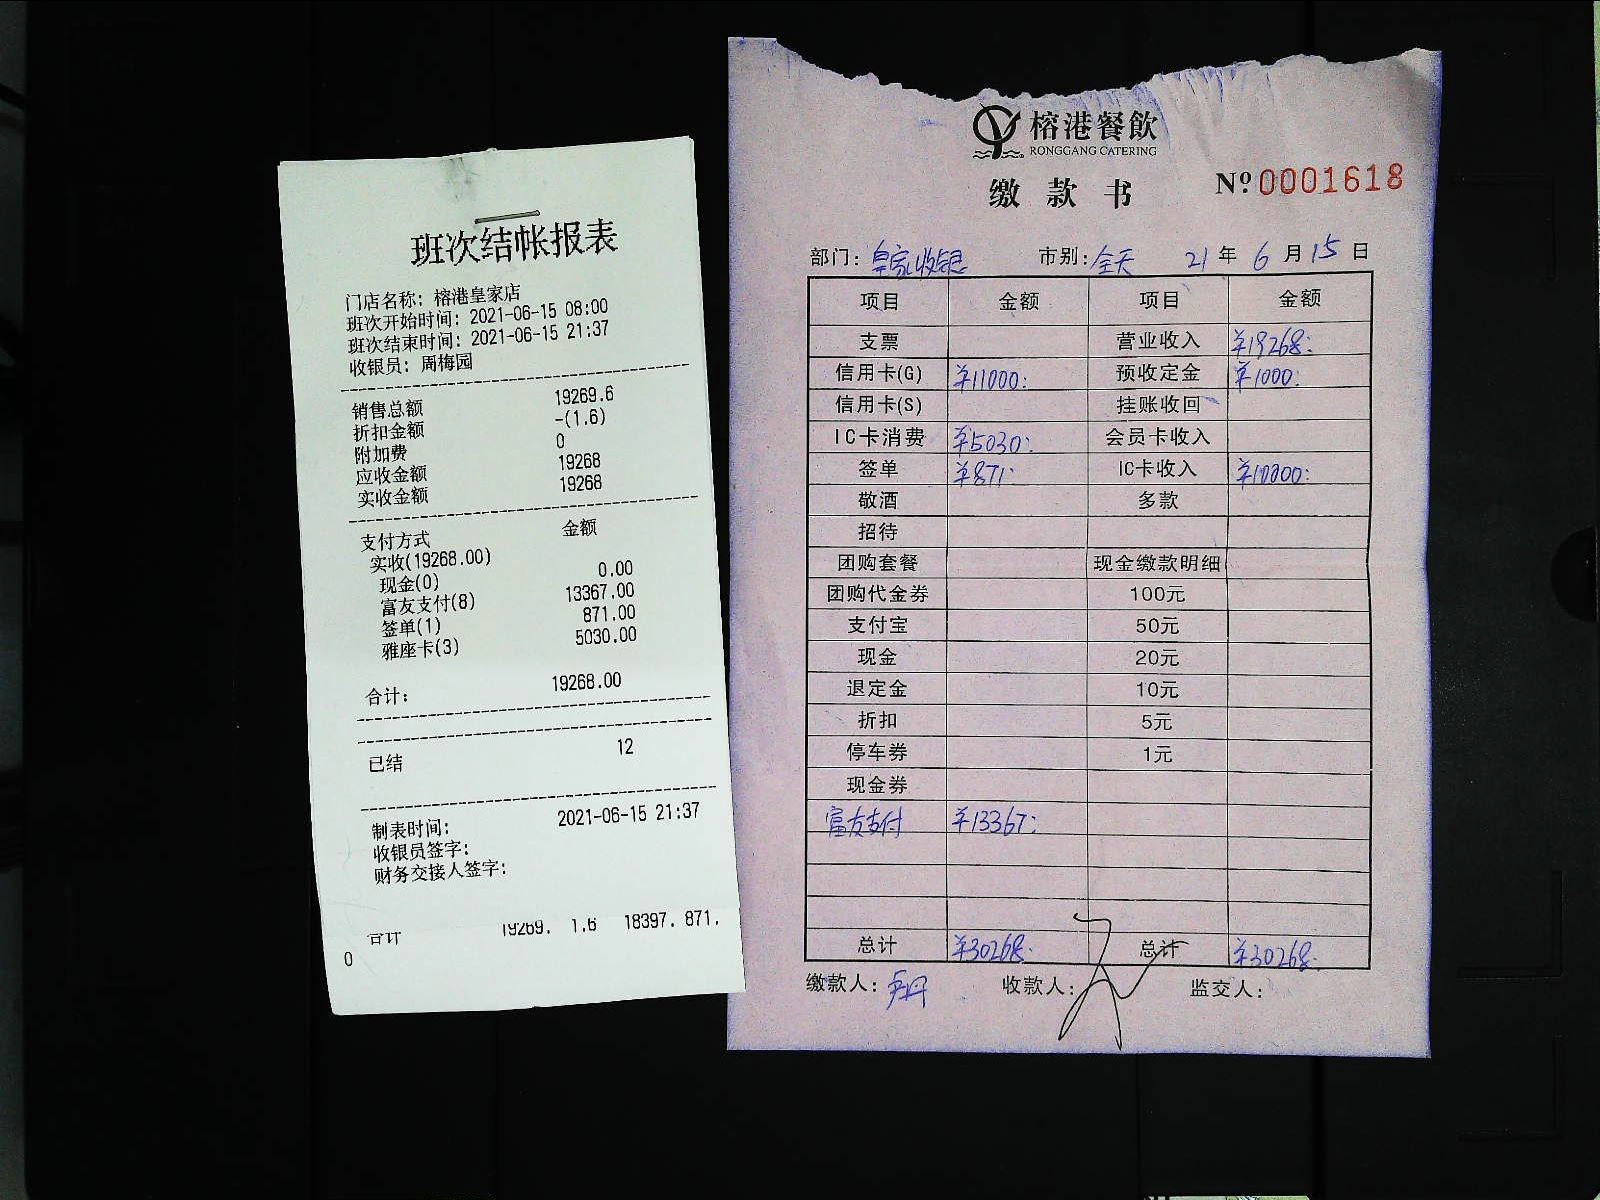 班次结帐报表
门店名称: 榕港皇家店
班次开始时间: 2021-06-15 08:00
班次结束时间: 2021-06-15 21:37
收银员: 周梅园
销售总额 19269.6
折扣金额 -(1.6)
附加费 0
应收金额 19268
实收金额 19268
支付方式 金额
实收(19268.00)
现金(0) 0.00
富友支付(8) 13367.00
签单(1) 871.00
雅座卡(3) 5030.00
合计: 19268.00
已结 12
制表时间: 2021-06-15 21:37
收银员签字:
财务交接人签字:
合计 19269. 1.6 18397. 871.
0
榕港餐飲
RONGGANG CATERING
缴款书 Nº 0001618
部门: 皇家收银 市别: 全天 21年6月15日
项目 金额 项目 金额
支票 营业收入 ¥19268.
信用卡(G) ¥11000. 预收定金 ¥1000.
信用卡(S) 挂账收回
IC卡消费 ¥5030. 会员卡收入
签单 ¥871. IC卡收入 ¥10000.
敬酒 多款
招待
团购套餐 现金缴款明细
团购代金券 100元
支付宝 50元
现金 20元
退定金 10元
折扣 5元
停车券 1元
现金券
富友支付 ¥13367.
总计 ¥30268. 总计 ¥30268.
缴款人: 收款人: 监交人: